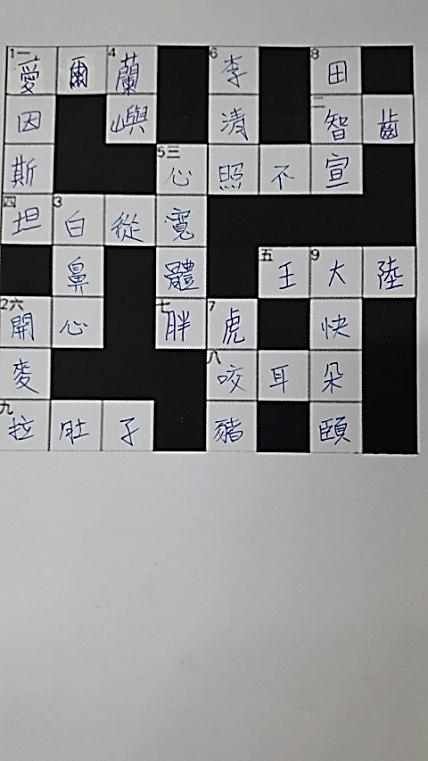 1一愛 爾 4蘭 6李 8田
因 嶼 清 二智 齒
斯 5三心 照 不 宣
四坦 3白 從 寬
鼻 體 五王 9大 陸
2六開 心 七胖 7虎 快
麥 八咬 耳 朵
九拉 肚 子 豬 頤